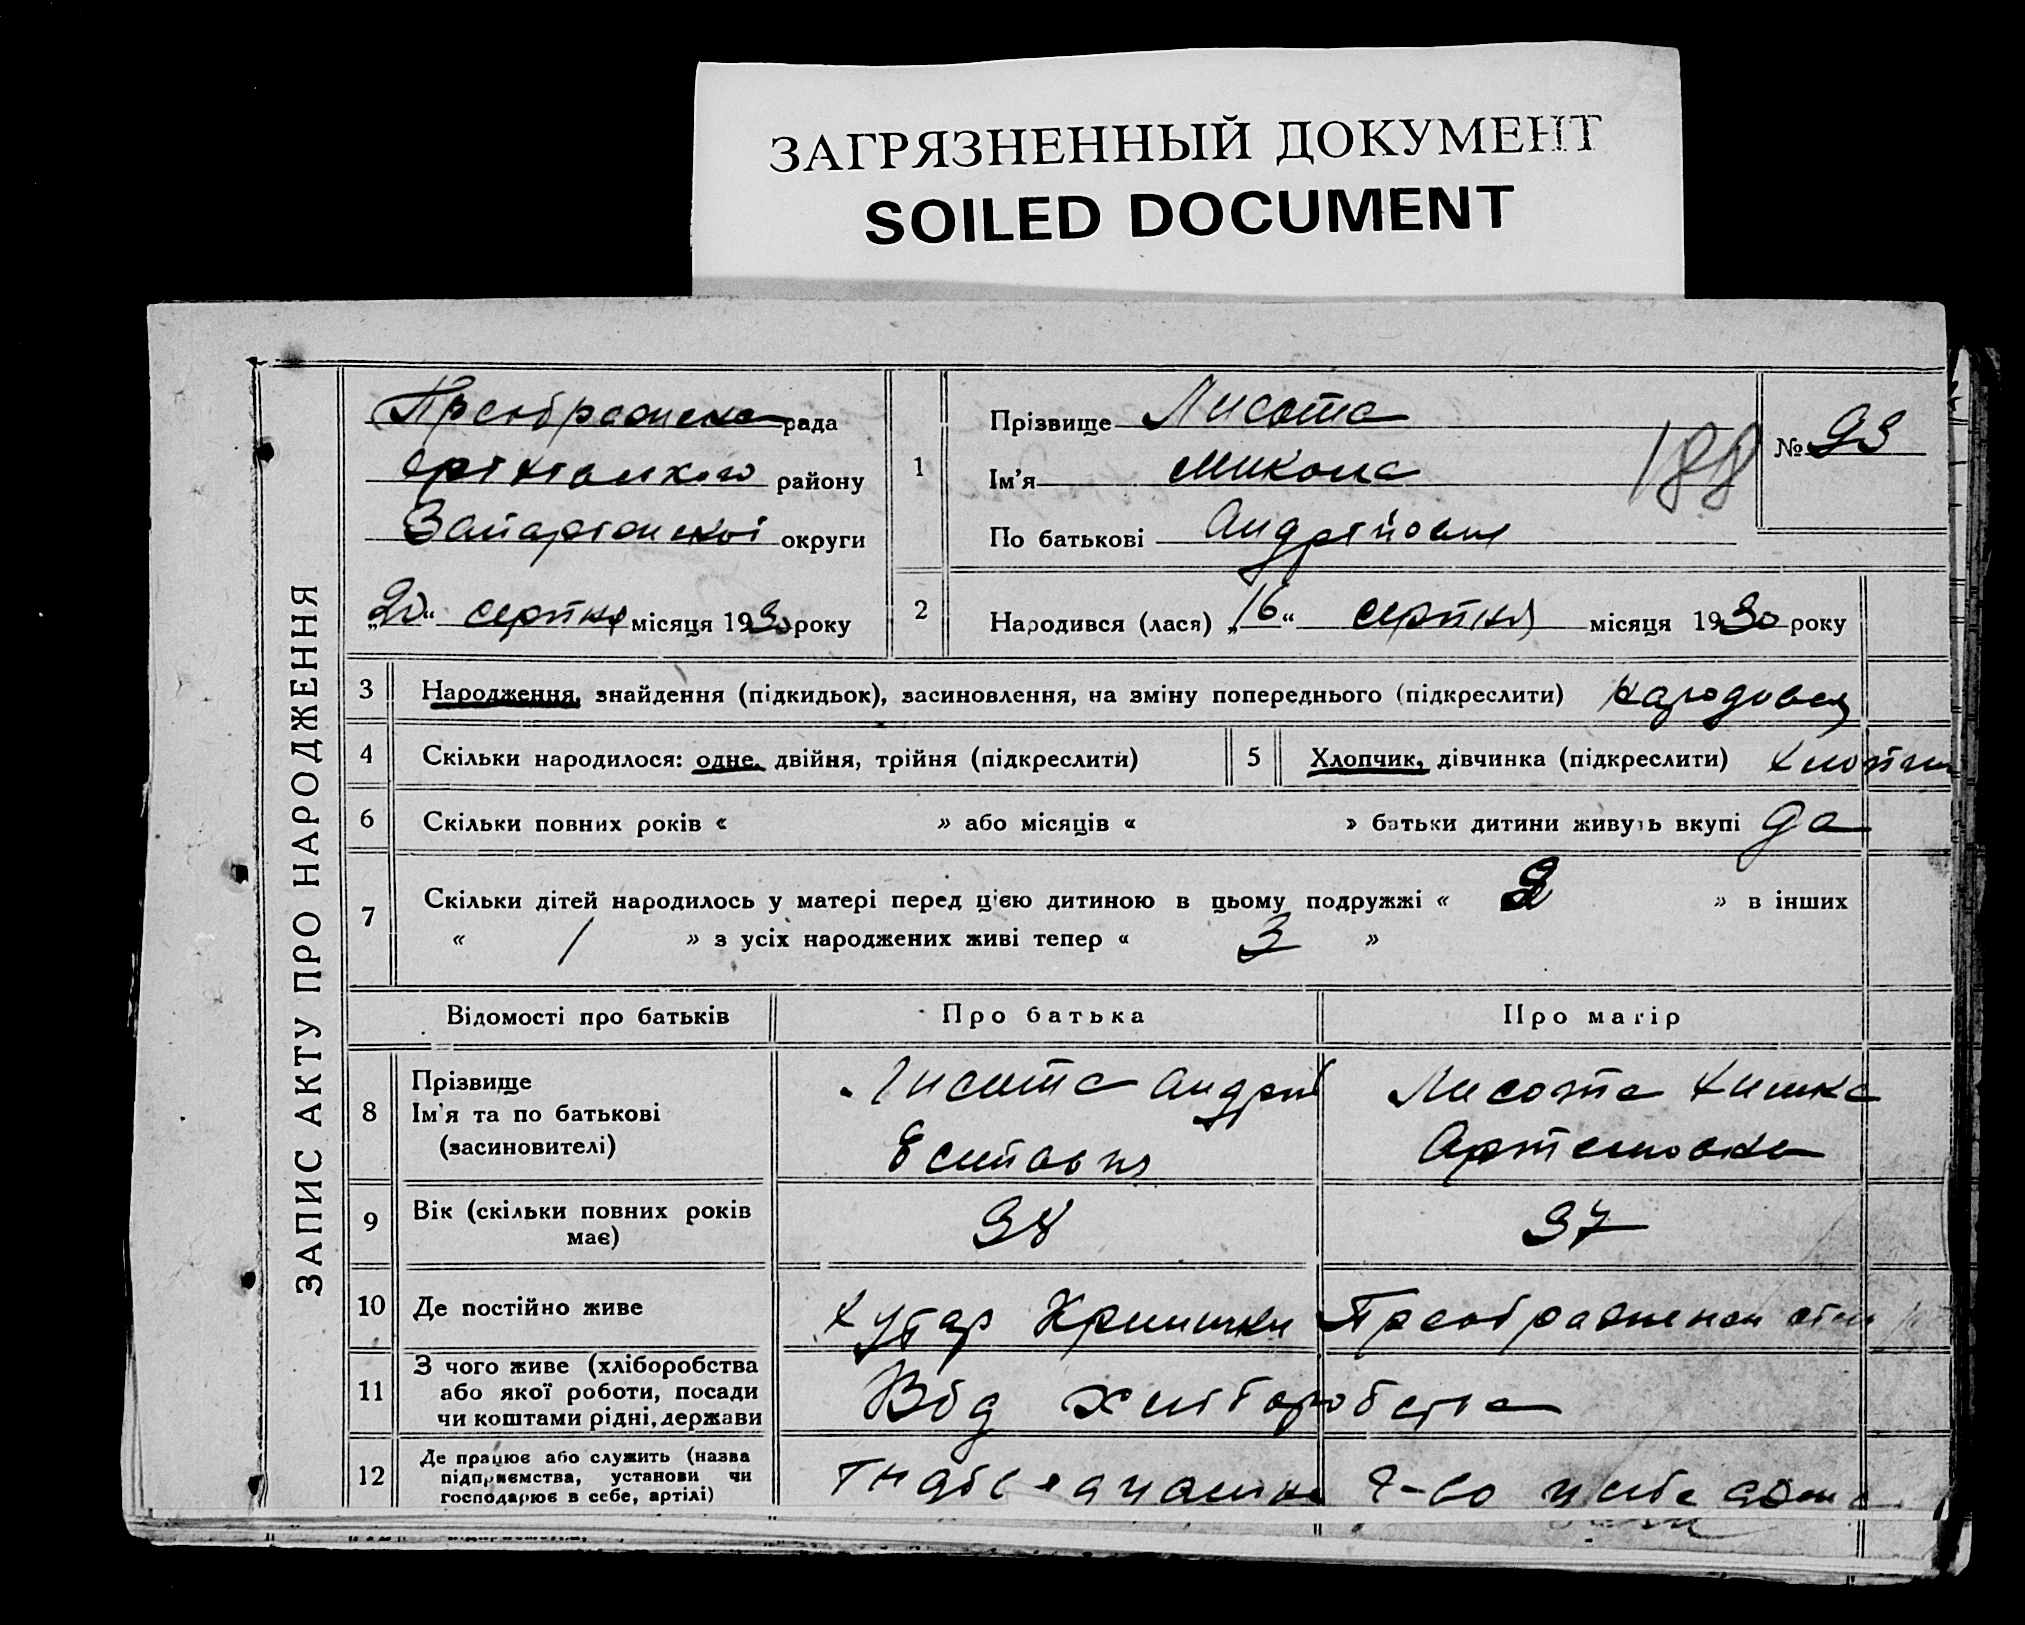 ЗАГРЯЗНЕННЫЙ ДОКУМЕНТ
SOILED DOCUMENT
ЗАПИС АКТУ ПРО НАРОДЖЕННЯ
Преображенска рада
району
округи
„20“ серпня місяця 1930 року
1
Прізвище Лисота
Ім'я Микола
По батькові Андрійович
188
№ 93
2
Народився (лася) „16“ серпня місяця 1930 року
3 Народження, знайдення (підкидьок), засиновлення, на зміну попереднього (підкреслити)
4 Скільки народилося: одне, двійня, трійня (підкреслити)
5 Хлопчик, дівчинка (підкреслити) хлопчик
6 Скільки повних років « » або місяців « » батьки дитини живуть вкупі да
7 Скільки дітей народилось у матері перед цією дитиною в цьому подружжі « 2 » в інших
« / » з усіх народжених живі тепер « 3 »
Відомості про батьків Про батька Про матір
8 Прізвище
Ім'я та по батькові
(засиновителі)
Лисота Андрій
Лисота
Артемовна
9 Вік (скільки повних років
має)
38
37
10 Де постійно живе
Хутар
11 З чого живе (хліборобства
або якої роботи, посади
чи коштами рідні, держави
Від хліборобства
12 Де працює або служить (назва
підприємства, установи чи
господарює в себе, артілі)